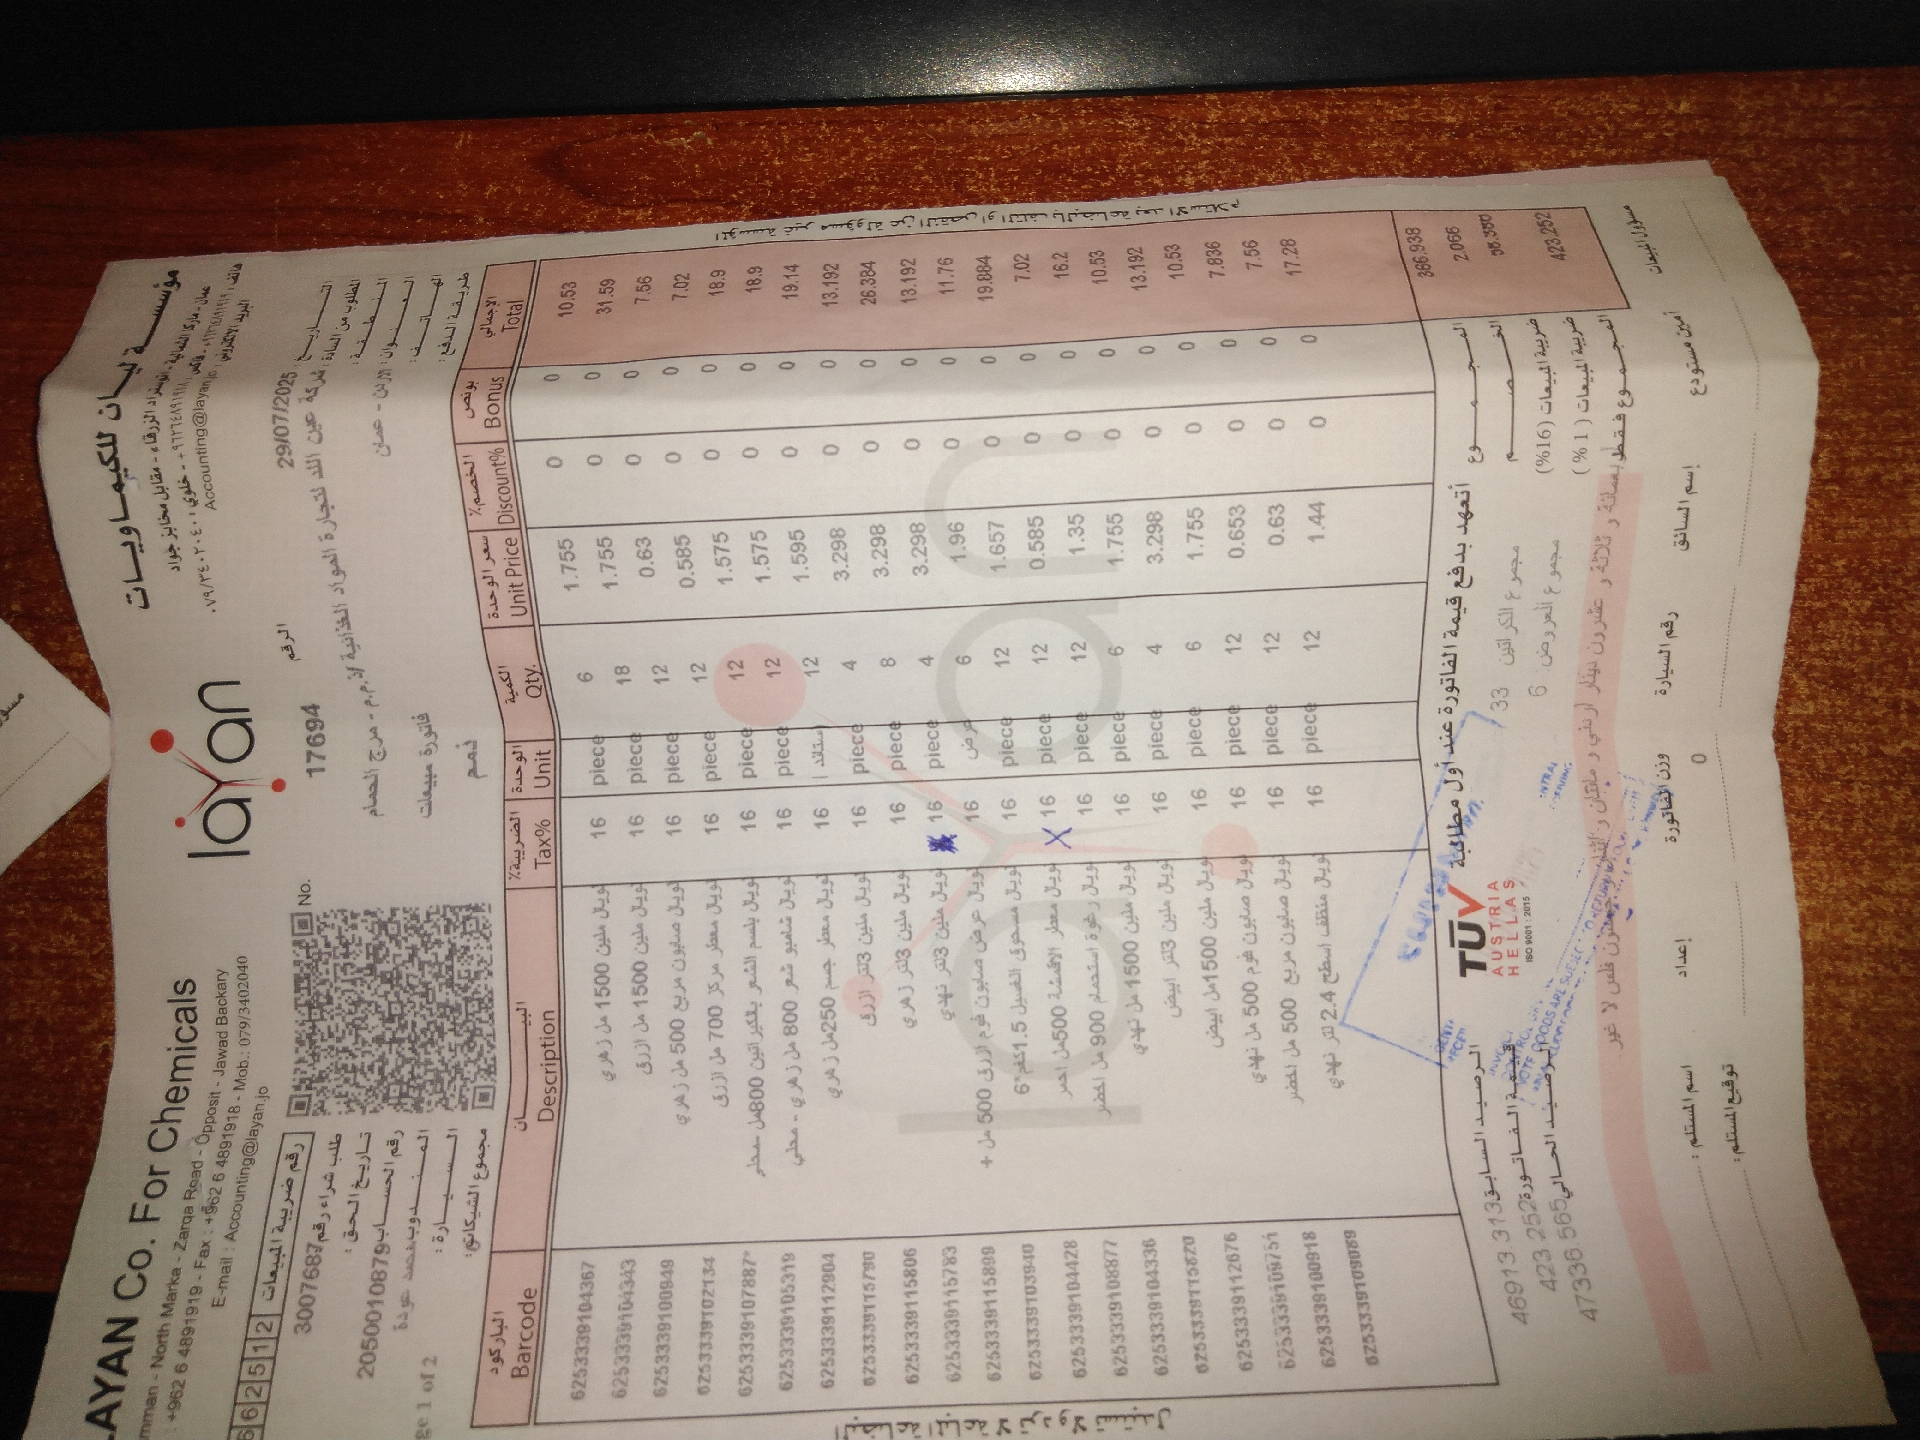 LAYAN Co. For Chemicals
مؤسسة ليان للكيماويات
Amman - North Marka - Zarqa Road - Opposit - Jawad Backary
+962 6 4891919 - Fax : +962 6 4891918 - Mob.: 079/3402040
E-mail : Accounting@layan.jo
Accounting@layan.jo
layan
No. 17694 الرقم
29/07/2025 التاريخ
رقم ضريبة المبيعات
3007687 طلب شراء رقم
تاريخ الحق :
2050010879 رقم الحساب
المندوب
السيارة :
مجموع الشيكات :
المطلوب من السادة :
شركة عين اللد لتجارة المواد الغذائية ذ.م.م - مرج الحمام
المنطقة :
العنوان : الاردن - عمان
الهاتف :
فاتورة مبيعات
طريقة الدفع :
ذمم
Page 1 of 2
الباركود البيان الضريبة% الوحدة الكمية سعر الوحدة الخصم% بونص الإجمالي
Barcode Description Tax% Unit Qty. Unit Price Discount% Bonus Total
6253339104367 نويال ملين 1500 مل زهري 16 piece 6 1.755 0 0 10.53
6253339104343 نويال ملين 1500 مل ازرق 16 piece 18 1.755 0 0 31.59
6253339100949 نويال صابون مربع 500 مل زهري 16 piece 12 0.63 0 0 7.56
6253339102134 نويال معطر مركز 700 مل ازرق 16 piece 12 0.585 0 0 7.02
6253339107887 نويال بلسم الشعر بالكيراتين 800مل 16 piece 12 1.575 0 0 18.9
6253339105319 نويال شامبو شعر 800 مل زهري - محلي 16 piece 12 1.575 0 0 18.9
6253339112904 نويال معطر جسم 250مل زهري 16 12 1.595 0 0 19.14
6253339115790 نويال ملين 3لتر ازرق 16 piece 4 3.298 0 0 13.192
6253339115806 نويال ملين 3لتر زهري 16 piece 8 3.298 0 0 26.384
6253339115783 نويال ملين 3لتر نهدي 16 piece 4 3.298 0 0 13.192
6253339115899 نويال عرض صابون فوم ازرق 500 مل + 16 عرض 6 1.96 0 0 11.76
6253339103940 نويال مسحوق الغسيل 1.5كغم*6 16 piece 12 1.657 0 0 19.884
6253339104428 نويال معطر الاقمشة 500مل احمر 16 piece 12 0.585 0 0 7.02
6253339108877 نويال رغوة استحمام 900 مل اخضر 16 piece 12 1.35 0 0 16.2
6253339104336 نويال ملين 1500 مل نهدي 16 piece 6 1.755 0 0 10.53
6253339115820 نويال ملين 3لتر ابيض 16 piece 4 3.298 0 0 13.192
6253339112676 نويال ملين 1500مل ابيض 16 piece 6 1.755 0 0 10.53
نويال صابون فوم 500 مل نهدي 16 piece 12 0.653 0 0 7.836
6253339100918 نويال صابون مربع 500 مل اخضر 16 piece 12 0.63 0 0 7.56
6253339109089 نويال منظف اسطح 2.4 لتر نهدي 16 piece 12 1.44 0 0 17.28
أتعهد بدفع قيمة الفاتورة عند أول مطالبة
المجموع 386.938
الخصم 2.066
ضريبة المبيعات (16%)
ضريبة المبيعات (1 %)
المجموع 423.252
مجموع الكراتين 33
مجموع العروض 6
الرصيد السابق 46913 313
قيمة الفاتورة 423 252
الرصيد الحالي 47336 565
TÜV
AUSTRIA
HELLAS
ISO 9001 : 2015
اسم المستلم :
توقيع المستلم :
إعداد
وزن الفاتورة
0
رقم السيارة
إسم السائق
أمين مستودع
مسؤول المبيعات
المؤسسة غير مسؤولة عن النقص او التلف بالبضاعة بعد الاستلام